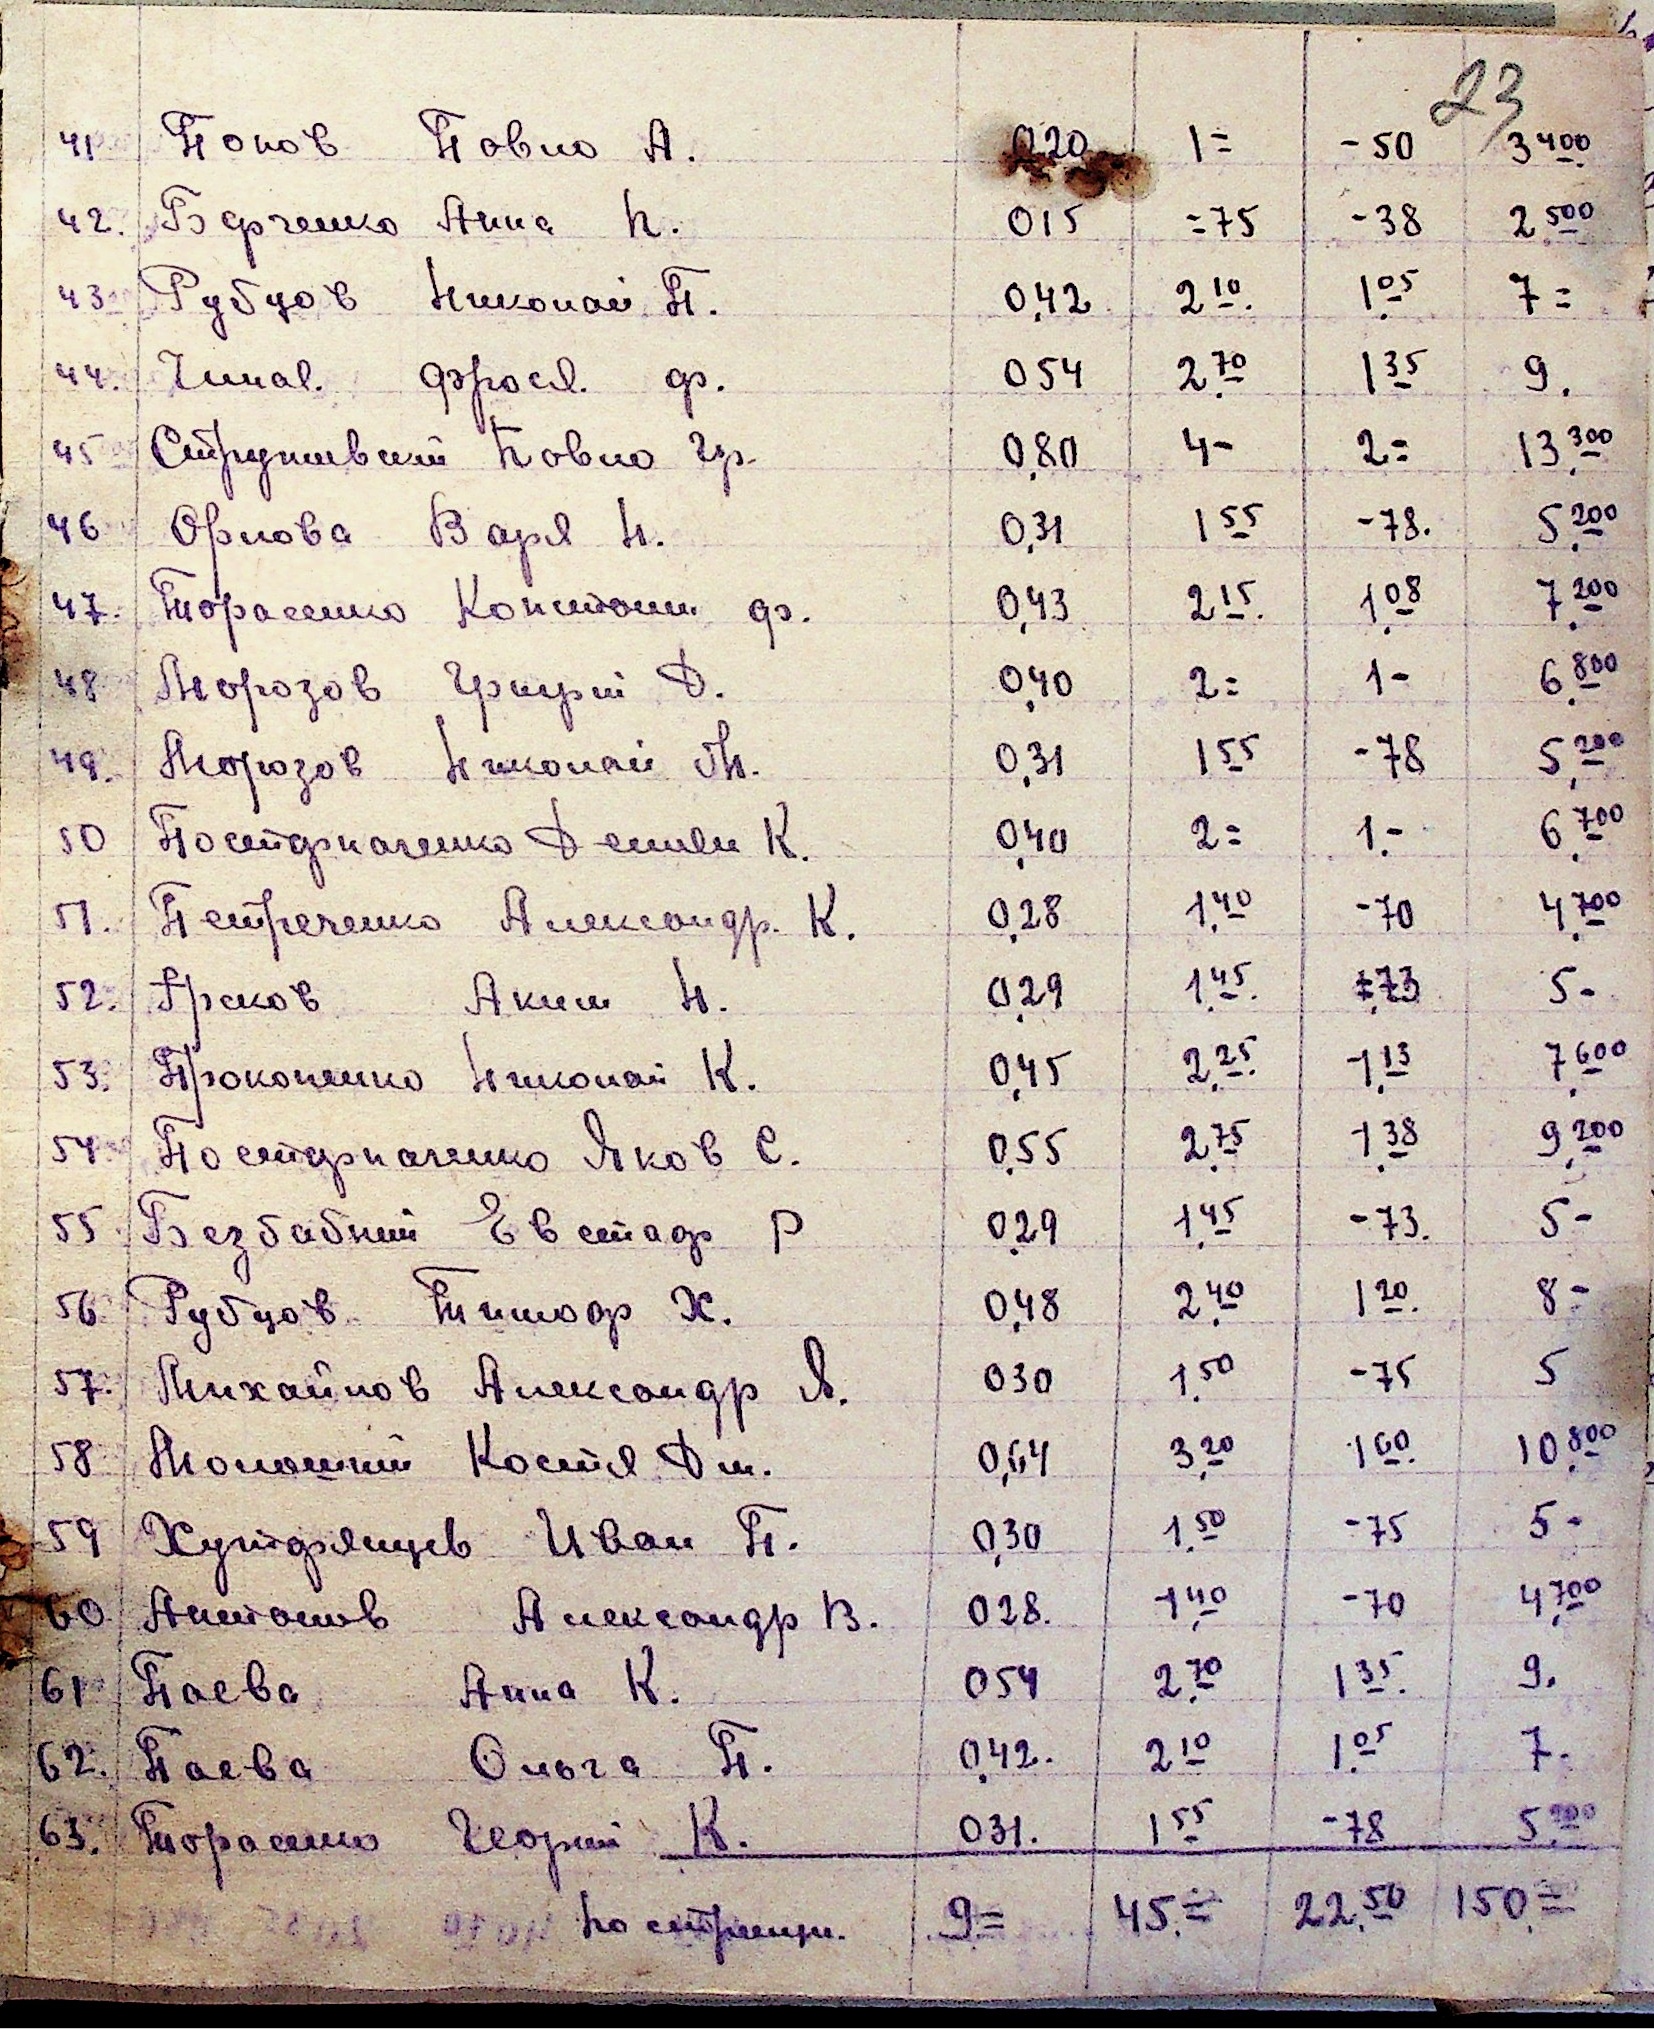 23
41 Попов Павло А. 0,20 1= -50 3 400
42. Барченко Анна П. 015 =75 -38 2 500
43 Рубцов Николай П. 0,42 2 10. 1 05 7=
44. Фросл. Ф. 054 2 70 1 35 9.
45 Павло Гр. 0,80 4- 2= 13 300
46 Орлова Варя Н. 0,31 1 55 -78. 5 200
47. Торасенко Констонт Ф. 0,43 2 15. 1 08 7 200
48 Морозов Григрий Д. 0,40 2= 1- 6 800
49. Морозов Николай М. 0,31 1 55 -78 5 200
50 К. 0,40 2= 1.- 6 700
51. Петреченко Александр. К. 0,28 1,40 -70 4 700
52. Греков Аким Н. 0,29 1,45. =73 5-
53. Прокопенко Николай К. 0,45 2,25. 1,13 7 600
54. Яков С. 0,55 2,75 1,38 9 200
55 Безбабний Евстаф Р 0,29 1,45 -73. 5-
56 Рубцов Тимоф Х. 0,48 2,40 1 20. 8-
57. Михайлов Александр Я. 030 1,50 -75 5
58 Костя Дм. 0,64 3,20 1 60. 10 800
59 Иван П. 0,30 1,50 -75 5-
60 Антонов Александр В. 028. 1 40 -70 4 700
61 Паева Анна К. 054 2,70 1 35. 9.
62. Паева Ольга П. 0,42. 2 10 1 05 7.
63. Торасенко Георгий К. 031. 1 55 -78 5 200
По 9= 45.= 22,50 150.=